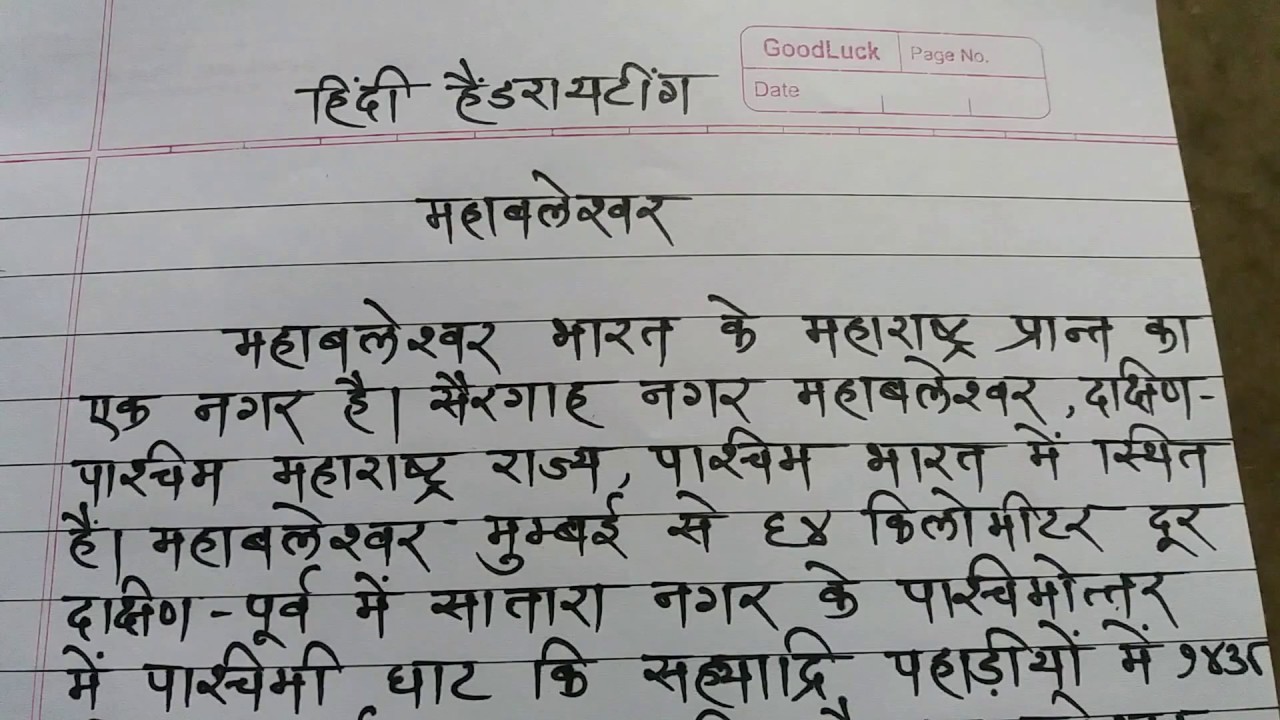 GoodLuck Page No.
Date
हिंदी हैंडरायटींग
महाबलेश्वर
महाबलेश्वर भारत के महाराष्ट्र प्रान्त का
एक नगर है। सैरगाह नगर महाबलेश्वर, दक्षिण-
पश्चिम महाराष्ट्र राज्य, पश्चिम भारत में स्थित
हैं। महाबलेश्वर मुम्बई से ६४ किलोमीटर दूर
दक्षिण-पूर्व में सातारा नगर के पश्चिमोत्तर
में पश्चिमी घाट कि सह्याद्रि पहाड़ीयों में